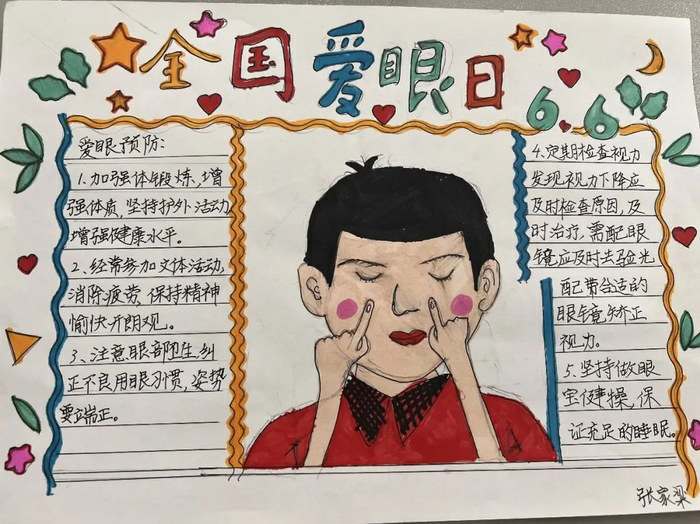 全国爱眼日
6.6
爱眼预防:
1.加强体锻炼,增
强体质,坚持护外活动
增强健康水平。
2、经常参加文体活动,
消除疲劳,保持精神
愉快开朗观。
3、注意眼部卫生,纠
正不良用眼习惯,姿势
要立端正。
4.定期检查视力
发现视力下降应
及时检查原因,及
时治疗,需配眼
镜应及时去验光
配带合适的
眼镜矫正
视力。
5.坚持做眼
宝健操,保
证充足的睡眠。
张家梁